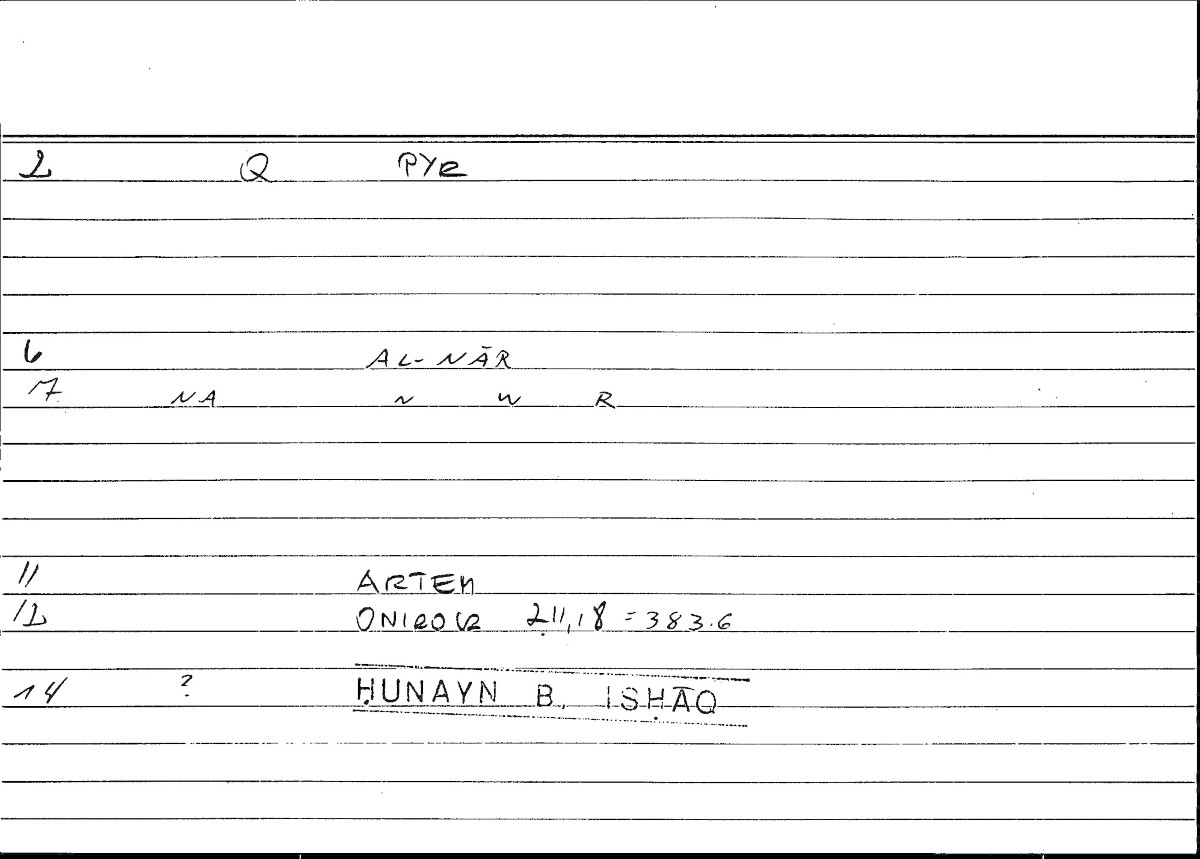 2 Q PYR
6 AL-NĀR
7 NA N W R
11 ARTEM
12 ONIROCR 211,18 = 383.6
14 ? ḤUNAYN B. ISḤĀQ